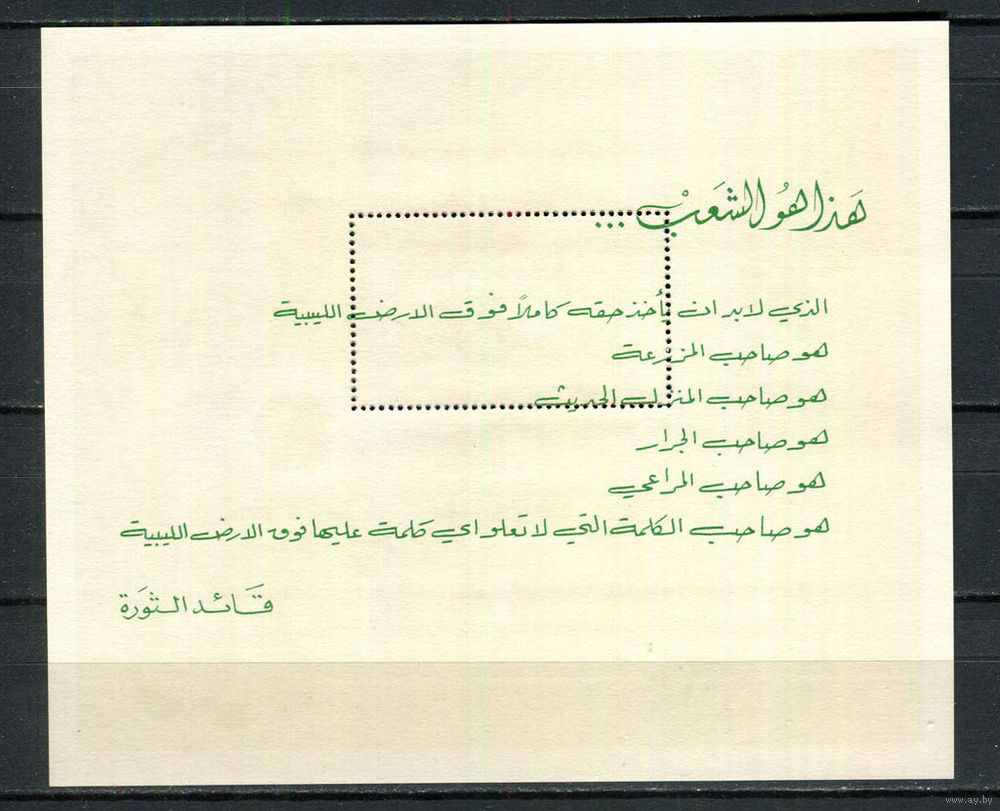 هَذا هُو الشعَبْ ...
الذي لابد ان يأخذ حقه كاملاً فوق الارض الليبية
هو صاحب المزرعة
هو صاحب المنزل الحديث
هو صاحب الجرار
هو صاحب المراعي
هو صاحب الكلمة التي لا تعلو اي كلمة عليها فوق الارض الليبية
قَائد الثورَة
www.ay.by